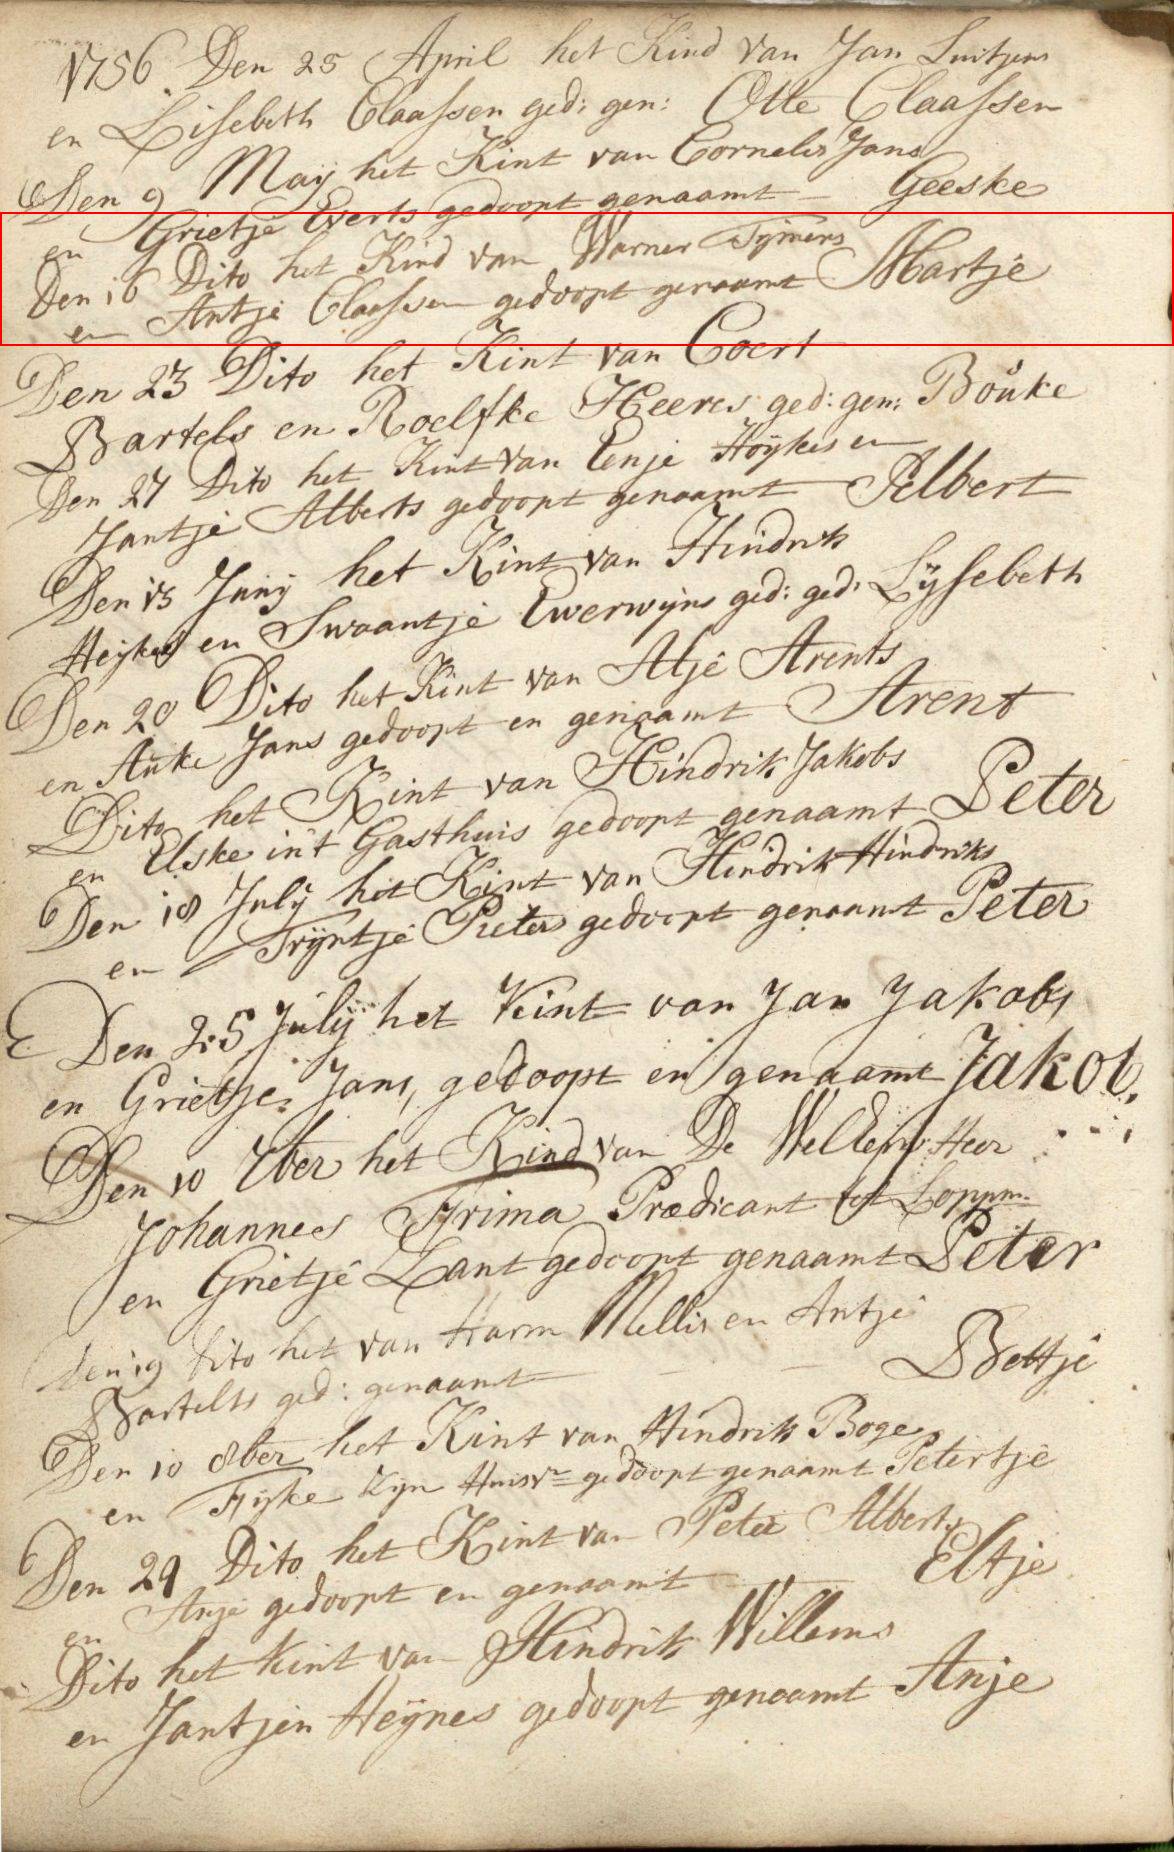 1756 Den 25 April het Kind van Jan Luitjens
en Lisebeth Claassen ged: gen: Otte Claassen
Den 9 Maij het Kint van Cornelis Jans
en Grietje Everts gedoopt genaamt – Geeske
Den 16 Dito het Kind van Warner Tijmens
en Antje Claassen gedoopt genaamt Martje
Den 23 Dito het Kint van Coert
Bartels en Roelfke Heeres ged: gen: Bouke
Den 27 Dito het Kint van Eenje Hoijkes en
Jantje Alberts gedoopt genaamt Pelbert
Den 13 Junij het Kint van Hindrik
Heijkes en Swaantje Ewerwijns ged: ged: Lijsebeth
Den 20 Dito het Kint van Atje Arents
en Auke Jans gedoopt en genaamt Arent
Dito het Kint van Hindrik Jakobs
en Elske in't Gasthuis gedoopt genaamt Peter
Den 18 Julij het Kint van Hindrik Hindriks
en Trijntje Pieters gedoopt genaamt Peter
Den 25 Julij het Kint van Jan Jakobs
en Grietje Jans, gedoopt en genaamt Jakob,
Den 10 7ber het Kind van De Heer
Johannes Prædicant tot Lopp:m
en Grietje Lant gedoopt genaamt Peter
Den 19 Dito het van Harm Mellis en Antje
Bartelts ged: genaamt – Bettje
Den 10 8ber het Kint van Hindrik Boge
en Fijke zijn Huisvr gedoopt genaamt Petertje
Den 29 Dito het Kint van Peter Alberts
en Anje gedoopt en genaamt Eltje
Dito het Kint van Hindrik Willems
en Jantjen Heijnes gedoopt genaamt Anje